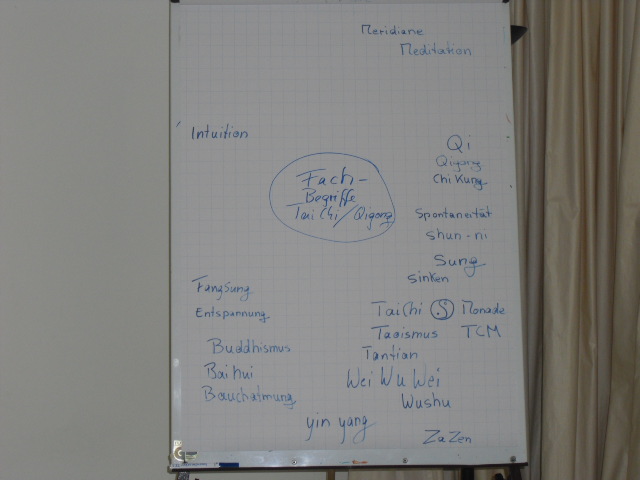 Meridiane
Meditation
Intuition
Qi
Qigong
Chi Kung
Fach-
Begriffe
Tai Chi/Qigong
Spontaneität
Shun-ni
Sung
Sinken
FangSung
Entspannung
Tai Chi Monade
Taoismus TCM
Buddhismus
Tantian
Bai hui
Wei Wu Wei
Bauchatmung
Wushu
yin yang
ZaZen